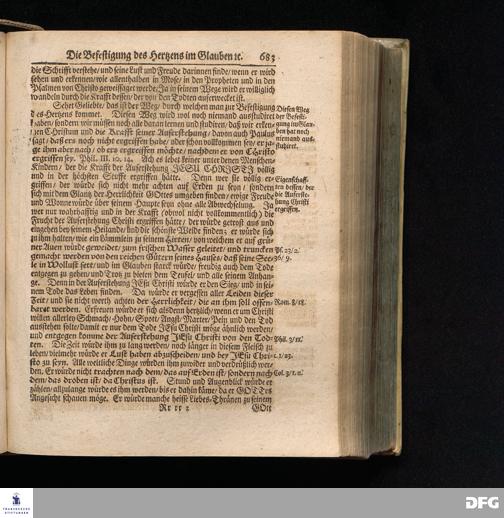 Die Befestigung des Hertzens im Glauben ꝛc. 683
die Schrifft verstehe/ und seine Lust und Freude darinnen finde/ wenn er wird
sehen und erkennen/ wie allenthalben in Mose/ in den Propheten und in den
Psalmen von Christo geweissaget werde/ Ja in seinem Wege wird er williglich
wandeln durch die Krafft dessen/ der von den Todten auferwecket ist.
Sehet Geliebte/ das ist der Weg/ durch welchen man zur Befestigung
des Hertzens kommet. Diesen Weg wird wol noch niemand ausstudiret
haben/ sondern wir müssen noch alle daran lernen und studiren/ daß wir erken-
nen Christum und die Krafft seiner Auferstehung/ davon auch Paulus
sagt/ daß ers noch nicht ergriffen habe/ oder schon vollkommen sey/ er ja-
ge ihm aber nach/ ob ers ergreiffen möchte/ nachdem er von Christo
ergriffen sey. Phil. III. 10. 14. Ach es lebet keiner unter denen Menschen-
Kindern/ der die Krafft der Auferstehung JESU CHRISTJ völlig
und in der höchsten Stuffe ergriffen hätte. Denn wer sie völlig er-
griffen/ der würde sich nicht mehr achten auf Erden zu seyn/ sondern
sich mit dem Glantz der Herrlichkeit GOttes umgeben finden/ ewige Freude
und Wonne würde über seinem Haupte seyn ohne alle Abwechselung. Ja
wer nur wahrhafftig und in der Krafft (obwol nicht vollkommentlich) die
Frucht der Auferstehung Christi ergriffen hätte/ der würde getrost aus und
eingehen bey seinem Heilande/ und die schönste Weide finden; er würde sich
zu ihm halten/ wie ein Lämmlein zu seinem Hirten/ von welchem er auf grü-
ner Auen würde geweidet/ zum frischen Wasser geleitet/ und truncken
gemacht werden von den reichen Gütern seines Hauses/ daß seine See-
le in Wollust fett/ und im Glauben starck würde/ freudig auch dem Tode
entgegen zu gehen/ und Trotz zu bieten dem Teufel/ und alle seinem Anhan-
ge. Denn in der Auferstehung JEsu Christi würde er den Sieg/ und in sei-
nem Tode das Leben finden. Da würde er vergessen aller Leiden dieser
Zeit/ und sie nicht werth achten der Herrlichkeit/ die an ihm soll offen-
baret werden. Erfreuen würde er sich alsdenn hertzlich/ wenn er um Christi
willen allerley Schmach/ Hohn/ Spott/ Angst/ Marter/ Pein und den Tod
ausstehen solte/ damit er nur dem Tode JEsu Christi möge ähnlich werden/
und entgegen komme der Auferstehung JESu Christi von den Tod-
ten. Die Zeit würde ihm zu lang werden/ noch länger in diesem Fleisch zu
leben/ vielmehr würde er Lust haben abzuscheiden/ und bey JEsu Chri-
sto zu seyn. Alle weitliche Dinge würden ihm zuwider und verdrüßlich wer-
den. Er würde nicht trachten nach dem/ das auf Erden ist/ sondern nach
dem/ das droben ist/ da Christus ist. Stund und Augenblick würde er
zählen/ allzulange würde es ihm werden/ bis er dahin käme/ da er GOTTes
Angesicht schauen möge. Er würde manche heisse Liebes-Thränen zu seinem
Rr rr 2 GOtt
Diesen Weg
der Befesti-
gung im Glau-
ben hat noch
niemand aus-
studiret.
Eigenschaff-
ten dessen/ der
die Auferste-
hung Christi
ergriffen.
Ps. 23/2.
36/9.
Rom. 8/18.
Phil. 3/11.
c. 1/23.
Col. 3/1. 2.
FRANCKESCHE
STIFTUNGEN
DFG